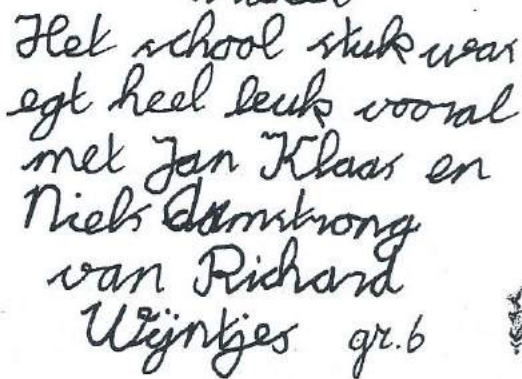 Het school stuk was
egt heel leuk vooral
met Jan Klaas en
Niels Armstrong
van Richard
Wijntjes gr.6